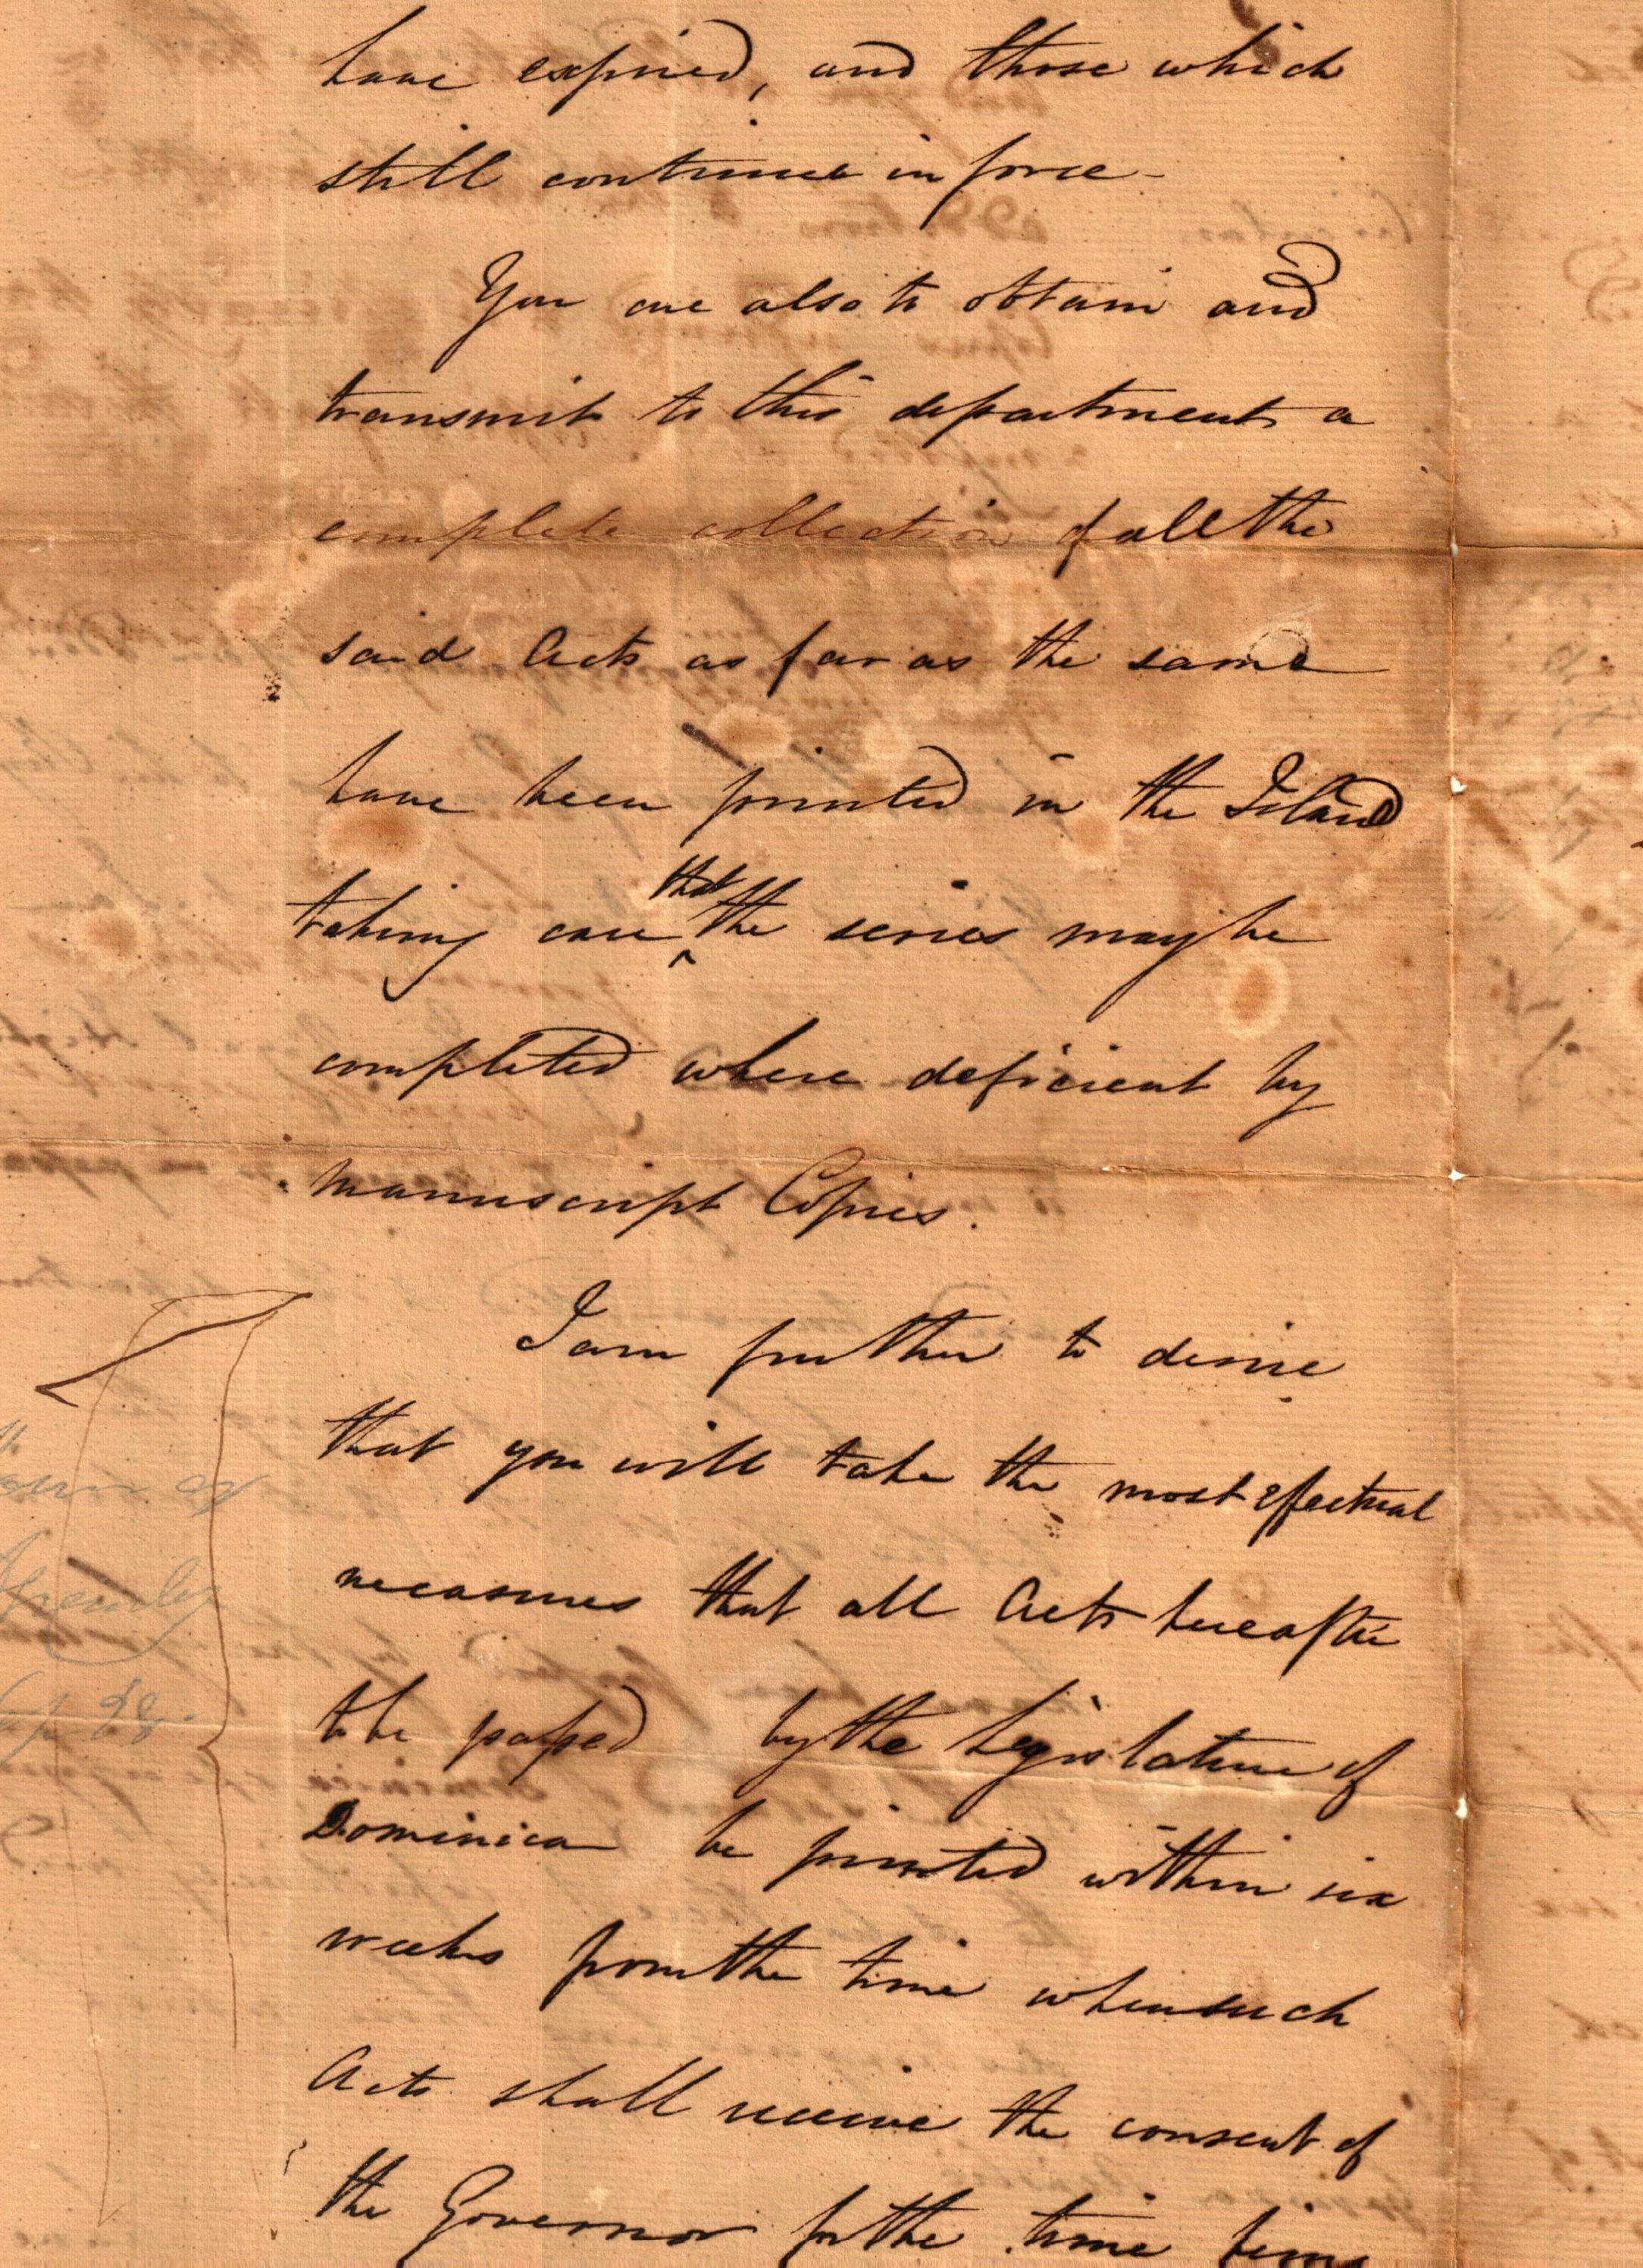 have expired, and those which
still continue in force -
You are also to obtain and
transmit to this department a
complete collection of all the
said Acts as far as the same
have been printed in the Island
that
taking care ^ the series may be
completed where deficient by
manuscript Copies.
I am further to desire
that you will take the most effectual
measures that all Acts hereafter
to be passed by the Legislature of
Dominica be printed within six
weeks from the time when such
Acts shall receive the consent of
the Governor for the time being